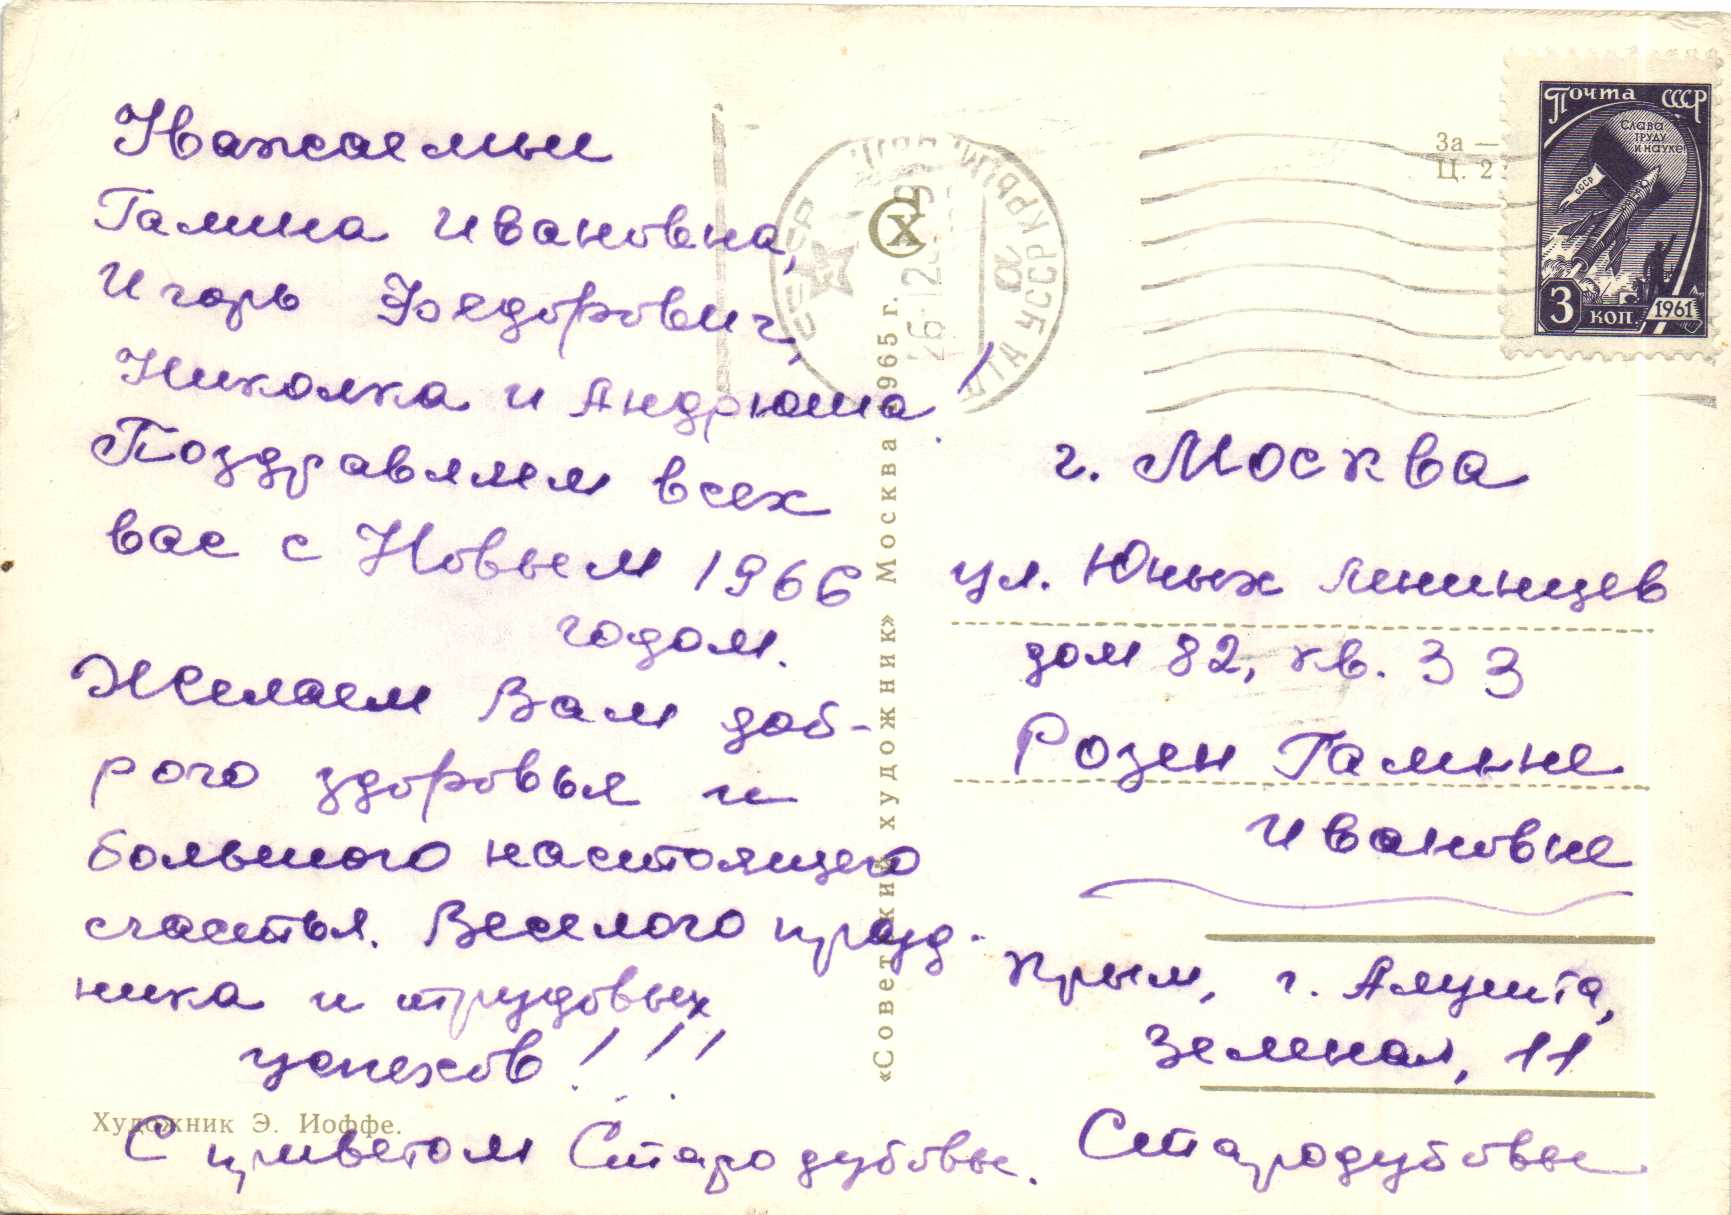 Уважаемые
Галина Ивановна,
Игорь Федорович,
Николка и Андрюша!
Поздравляем всех
вас с Новым 1966
годом.
Желаем Вам доб-
рого здоровья и
большого настоящего
счастья. Веселого празд-
ника и трудовых
успехов!!!
С приветом Стародубовы.
Художник Э. Иоффе.
«Советский художник» Москва 1965 г.
СХ
УССР КРЫМ
26 12
За —
Ц. 2
Почта СССР
Слава
труду
и науке!
СССР
3 коп. 1961
г. Москва
ул. Юных Ленинцев
дом 82, кв. 33
Розен Галине
Ивановне
Крым, г. Алушта,
Зеленая, 11
Стародубовы